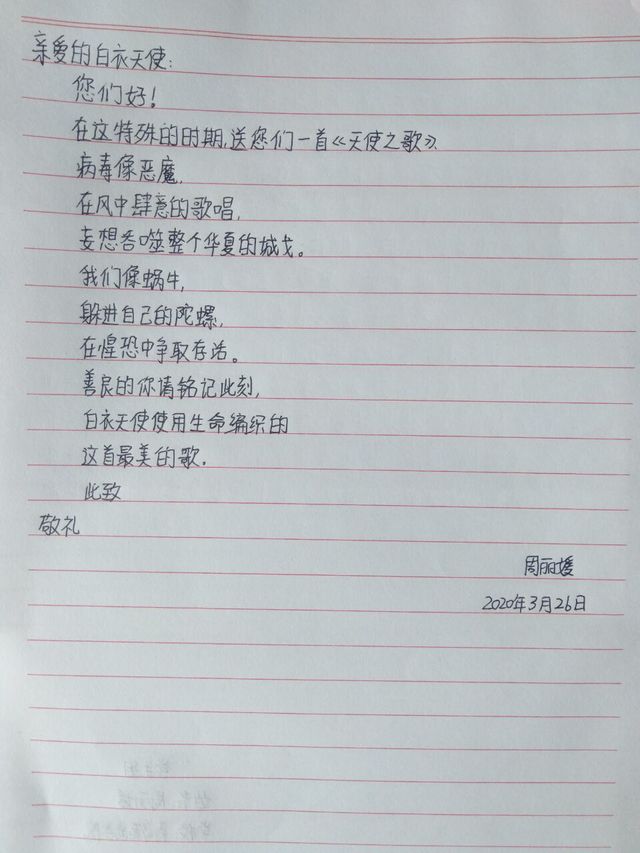 亲爱的白衣天使:
您们好!
在这特殊的时期,送您们一首《天使之歌》,
病毒像恶魔,
在风中肆意的歌唱,
妄想吞噬整个华夏的城戈。
我们像蜗牛,
躲进自己的陀螺,
在惶恐中争取存活。
善良的你请铭记此刻,
白衣天使使用生命编织的
这首最美的歌.
此致
敬礼
周丽媛
2020年3月26日